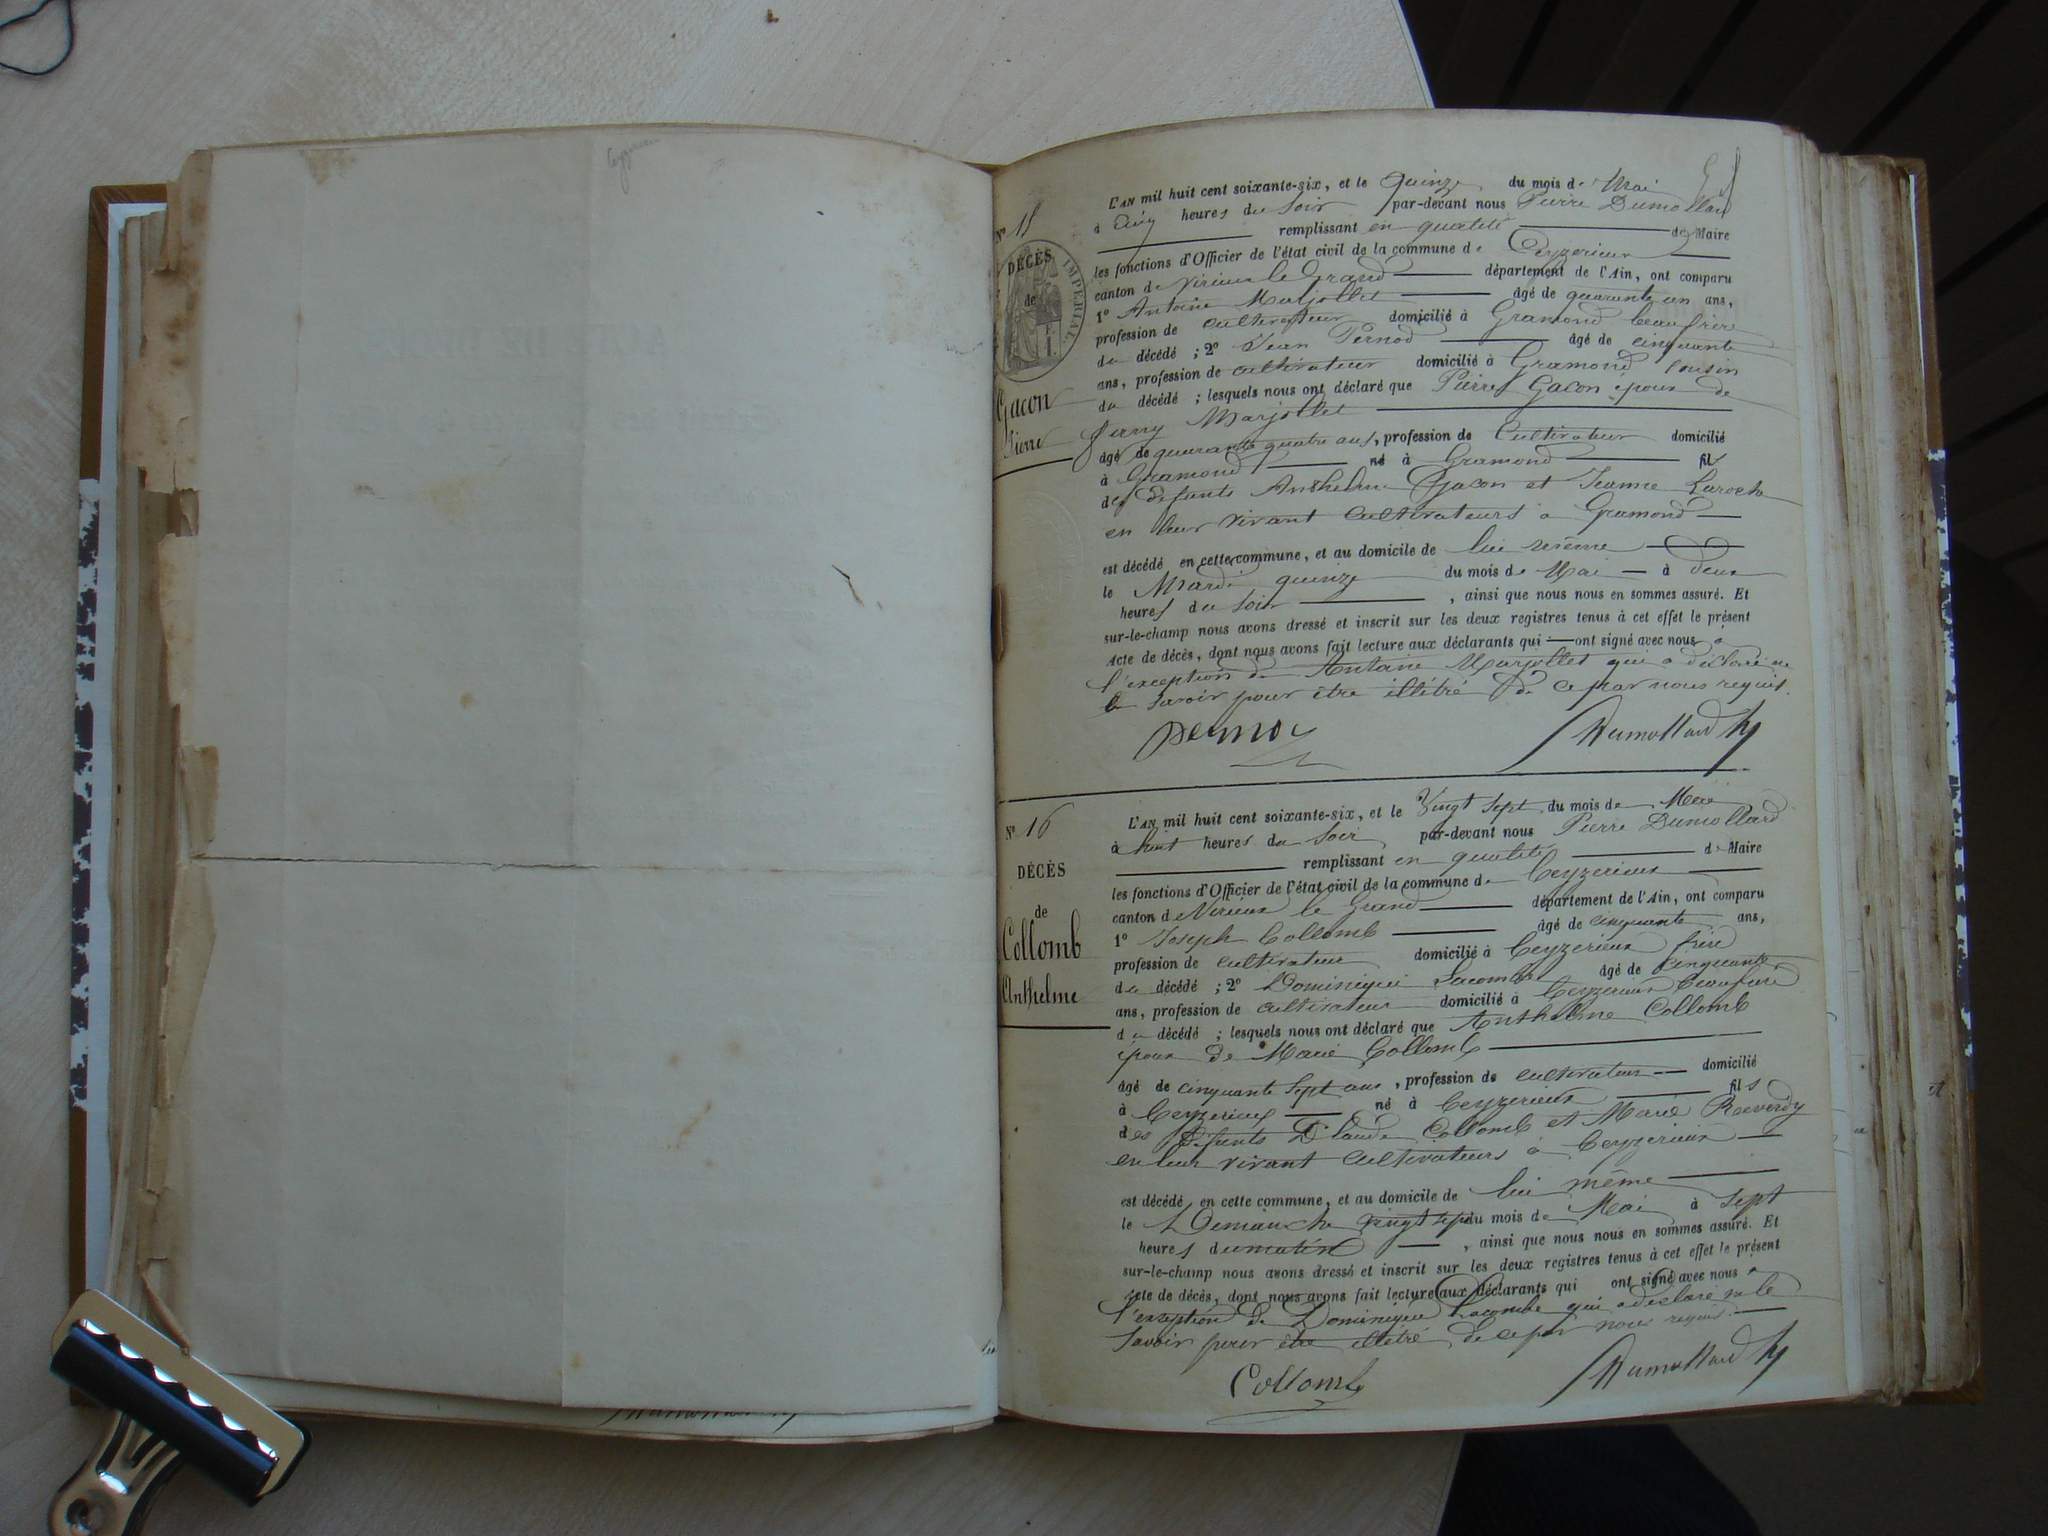 Ceyzerieu
N° 15
DÉCÈS
de
IMPÉRIAL
Gacon
Pierre
L'AN mil huit cent soixante-six, et le Quinze du mois de Mai
à Cinq heures du Soir par-devant nous Pierre Dumollard
remplissant en qualité de Maire
les fonctions d'Officier de l'état civil de la commune de Ceyzerieux
canton de Virieux le Grand département de l'Ain, ont comparu
1° Antoine Marjollet âgé de quarante un ans,
profession de cultivateur domicilié à Gramond beau frère
du décédé ; 2° Jean Pernod âgé de cinquante
ans, profession de cultivateur domicilié à Gramond Cousin
du décédé ; lesquels nous ont déclaré que Pierre Gacon époux de
Fanny Marjollet
âgé de quarante quatre ans, profession de Cultivateur domicilié
à Gramond né à Gramond fils
des défunts Anthelme Gacon et Jeanne
en leur vivant Cultivateurs à Gramond
est décédé en cette commune, et au domicile de lui même
le Mardi quinze du mois de Mai à deux
heures du Soir , ainsi que nous nous en sommes assuré. Et
sur-le-champ nous avons dressé et inscrit sur les deux registres tenus à cet effet le présent
Acte de décès, dont nous avons fait lecture aux déclarants qui ont signé avec nous à
l'exception de Antoine Marjollet qui a déclaré ne
le savoir pour être illétré de ce par nous requis.
Pernod Dumollard
N° 16
DÉCÈS
de
Collomb
Anthelme
L'AN mil huit cent soixante-six, et le Vingt sept du mois de Mai
à huit heures du Soir par-devant nous Pierre Dumollard
remplissant en qualité de Maire
les fonctions d'Officier de l'état civil de la commune de Ceyzerieux
canton de Virieux le Grand département de l'Ain, ont comparu
1° Joseph Collomb âgé de cinquante ans,
profession de cultivateur domicilié à Ceyzerieux frère
du décédé ; 2° Dominique Lacombe âgé de cinquante
ans, profession de cultivateur domicilié à Ceyzerieux beaufrère
du décédé ; lesquels nous ont déclaré que Anthelme Collomb
époux de Marie Collomb
âgé de cinquante sept ans , profession de cultivateur domicilié
à Ceyzerieux né à Ceyzerieux fils
des défunts Claude Collomb et Marie Reverdy
en leur vivant cultivateurs à Ceyzerieux
est décédé en cette commune, et au domicile de lui même
le Dimanche vingt sept du mois de Mai à sept
heures du matin , ainsi que nous nous en sommes assuré. Et
sur-le-champ nous avons dressé et inscrit sur les deux registres tenus à cet effet le présent
acte de décès, dont nous avons fait lecture aux déclarants qui ont signé avec nous à
l'exception de Dominique Lacombe qui a déclaré ne le
savoir pour être illétré de ce par nous requis.
Collomb Dumollard